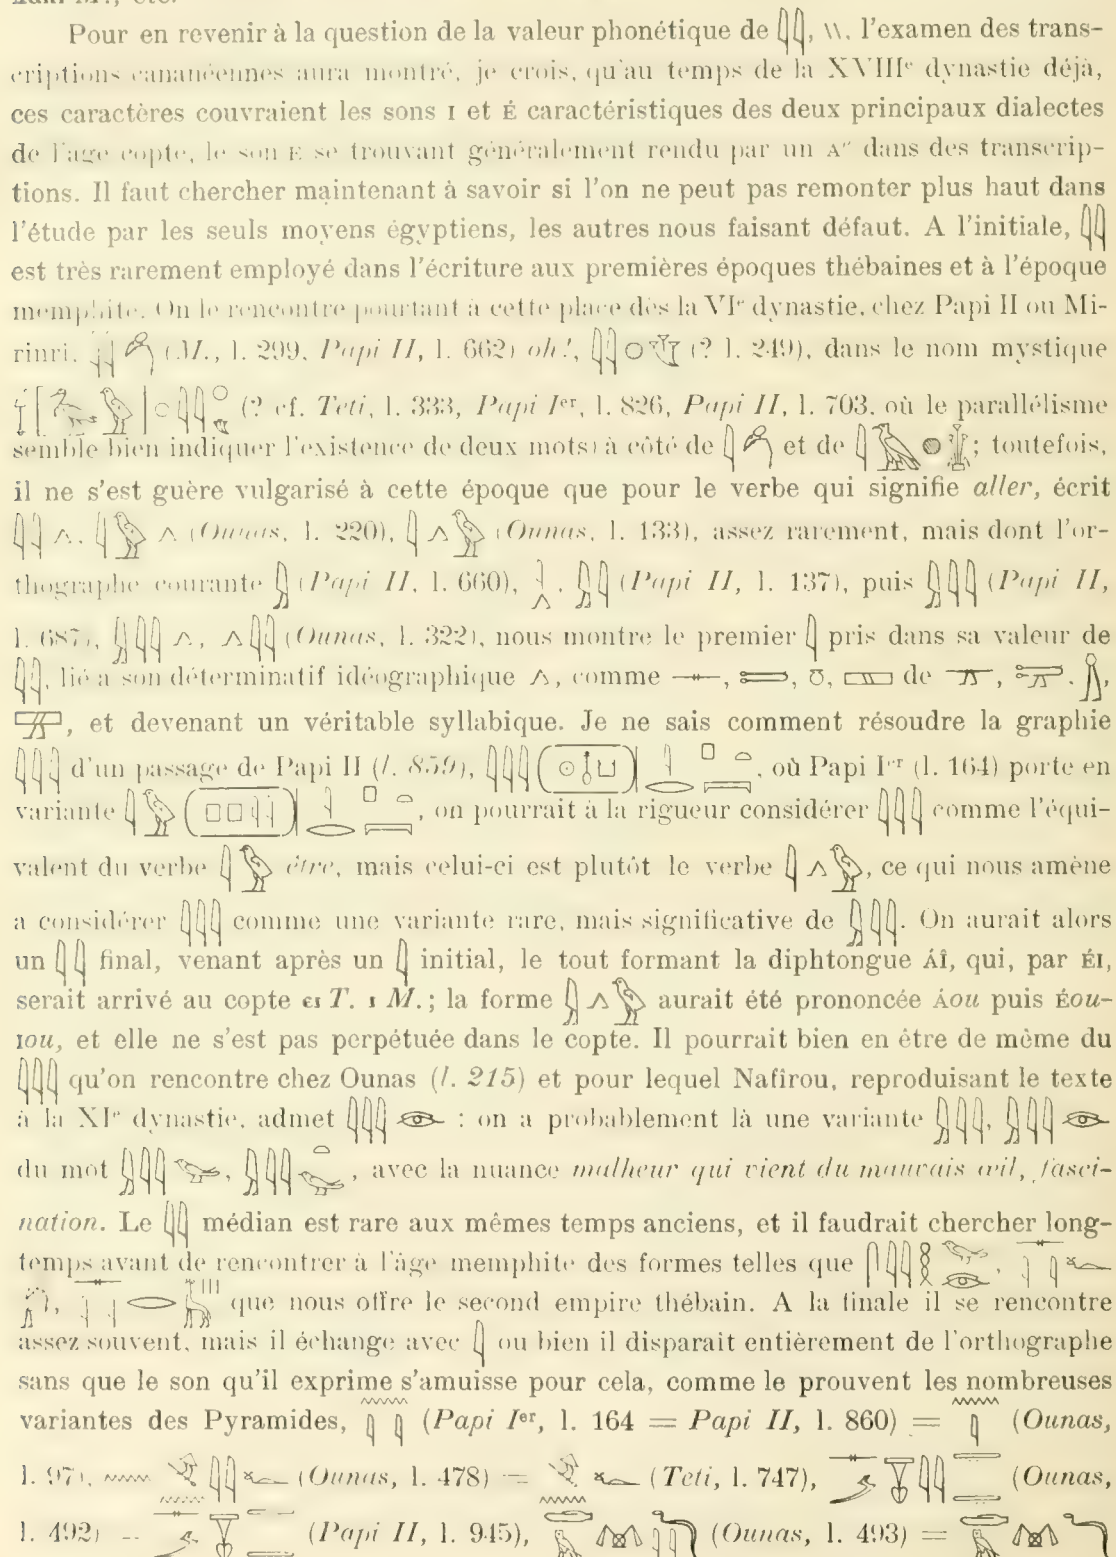 Pour en revenir à la question de la valeur phonétique de 𓇋𓇋, \\, l'examen des trans-
criptions cananéennes aura montré, je crois, qu'au temps de la XVIIIᵉ dynastie déjà,
ces caractères couvraient les sons I et É caractéristiques des deux principaux dialectes
de l'âge copte, le son E se trouvant généralement rendu par un dans des transcrip-
tions. Il faut chercher maintenant à savoir si l'on ne peut pas remonter plus haut dans
l'étude par les seuls moyens égyptiens, les autres nous faisant défaut. A l'initiale, 𓇋𓇋
est très rarement employé dans l'écriture aux premières époques thébaines et à l'époque
memphite. On le rencontre pourtant à cette place dès la VIᵉ dynastie, chez Papi II ou Mi-
rinri, 𓇋𓇋𓀁 (M., l. 299, Papi II, l. 662) oh!, 𓇋𓇋 (? l. 249), dans le nom mystique
(? cf. Teti, l. 333, Papi Iᵉʳ, l. 826, Papi II, l. 703, où le parallélisme
semble bien indiquer l'existence de deux mots) à côté de 𓇋𓀁 et de 𓇋𓅡𓐍; toutefois,
il ne s'est guère vulgarisé à cette époque que pour le verbe qui signifie aller, écrit
𓇋𓇋𓂻, 𓇋𓅱𓂻 (Ounas, l. 220), 𓇋𓂻𓅱 (Ounas, l. 133), assez rarement, mais dont l'or-
thographe courante 𓇍 (Papi II, l. 660), 𓇋𓂻, 𓇍𓇋 (Papi II, l. 137), puis 𓇍𓇋𓇋 (Papi II,
l. 687), 𓇍𓇋𓇋𓂻, 𓂻𓇋𓇋 (Ounas, l. 322), nous montre le premier 𓇋 pris dans sa valeur de
𓇋𓇋, lié à son déterminatif idéographique 𓂻, comme 𓊃, 𓍿, 𓏌, 𓈙 de 𓊴, 𓍿𓂻, 𓏎,
𓈝, et devenant un véritable syllabique. Je ne sais comment résoudre la graphie
𓇋𓇋𓇋 d'un passage de Papi II (l. 859), 𓇋𓇋𓇋(𓇳𓄤𓂓) 𓇋𓂋 𓊪𓏏𓇯, où Papi Iᵉʳ (l. 164) porte en
variante 𓇋𓅱(𓊪𓊪𓇋𓇋) 𓇋𓂋 𓊪𓏏𓇯, on pourrait à la rigueur considérer 𓇋𓇋𓇋 comme l'équi-
valent du verbe 𓇋𓅱 être, mais celui-ci est plutôt le verbe 𓇋𓂻𓅱, ce qui nous amène
à considérer 𓇋𓇋𓇋 comme une variante rare, mais significative de 𓇍𓇋𓇋. On aurait alors
un 𓇋𓇋 final, venant après un 𓇋 initial, le tout formant la diphtongue ÁÎ, qui, par ÉI,
serait arrivé au copte ⲉⲓ T. ⲓ M.; la forme 𓇍𓂻𓅱 aurait été prononcée Áou puis Éou-
Iou, et elle ne s'est pas perpétuée dans le copte. Il pourrait bien en être de même du
𓇋𓇋𓇋 qu'on rencontre chez Ounas (l. 215) et pour lequel Nafirou, reproduisant le texte
à la XIᵉ dynastie, admet 𓇋𓇋𓇋𓁹 : on a probablement là une variante 𓇍𓇋𓇋, 𓇍𓇋𓇋𓁹
du mot 𓇍𓇋𓇋𓅪, 𓇍𓇋𓇋𓏏𓅪, avec la nuance malheur qui vient du mauvais œil, fasci-
nation. Le 𓇋𓇋 médian est rare aux mêmes temps anciens, et il faudrait chercher long-
temps avant de rencontrer à l'âge memphite des formes telles que 𓋴𓇋𓇋𓎛𓅪𓁹,
que nous offre le second empire thébain. A la finale il se rencontre
assez souvent, mais il échange avec 𓇋 ou bien il disparait entièrement de l'orthographe
sans que le son qu'il exprime s'amuisse pour cela, comme le prouvent les nombreuses
variantes des Pyramides, 𓈖𓇋𓇋 (Papi Iᵉʳ, l. 164 = Papi II, l. 860) = 𓈖𓇋 (Ounas,
l. 97), (Ounas, l. 478) = (Teti, l. 747), (Ounas,
l. 492) = (Papi II, l. 945), (Ounas, l. 493) =